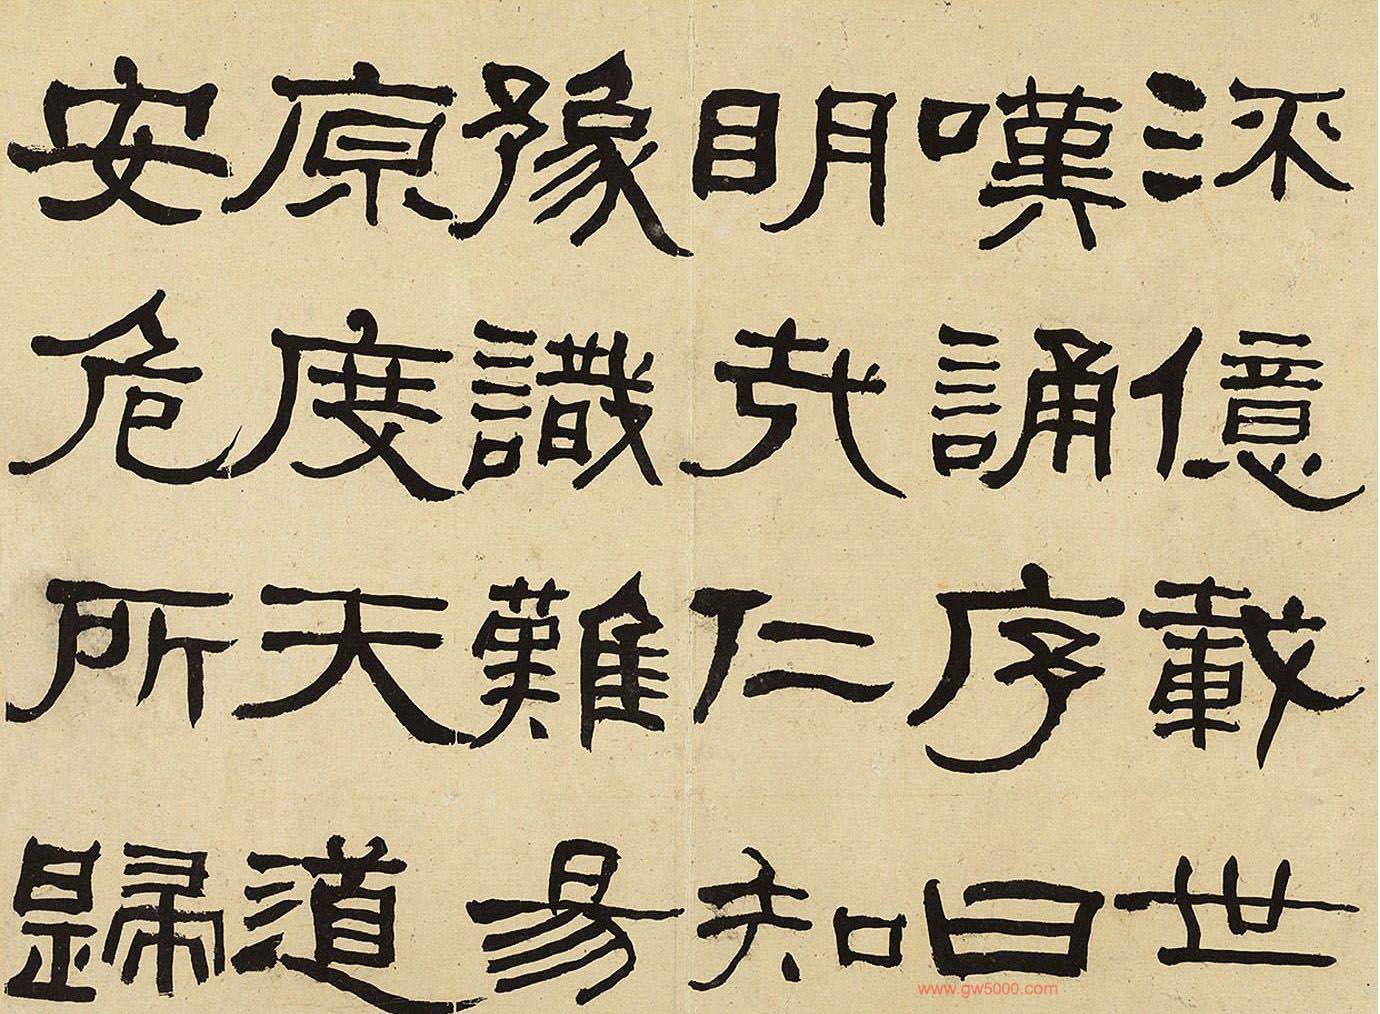 流億載世
嘆誦序曰
明哉仁知
豫識難易
原度天道
安危所歸
www.gw5000.com